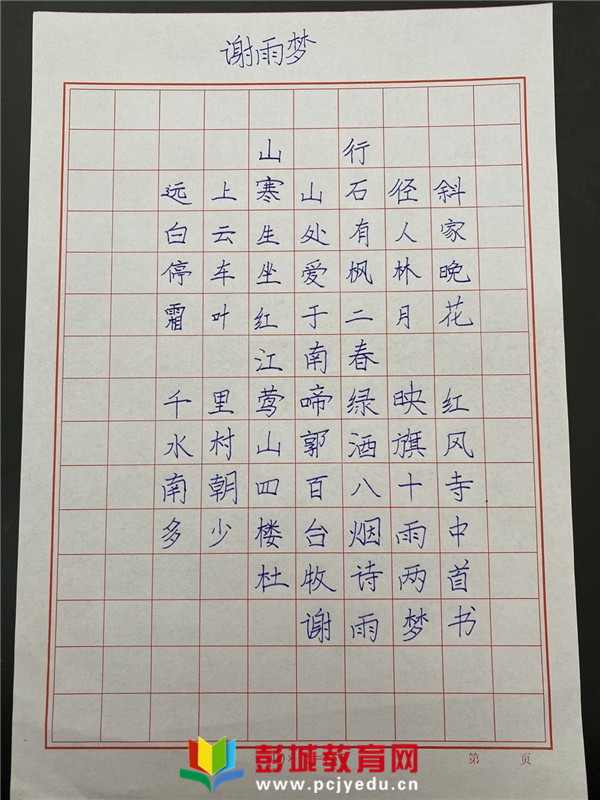 谢雨梦
山行
远上寒山石径斜
白云生处有人家
停车坐爱枫林晚
霜叶红于二月花
江南春
千里莺啼绿映红
水村山郭酒旗风
南朝四百八十寺
多少楼台烟雨中
杜牧诗两首
谢雨梦书
第 页
彭城教育网
www.pcjyedu.cn